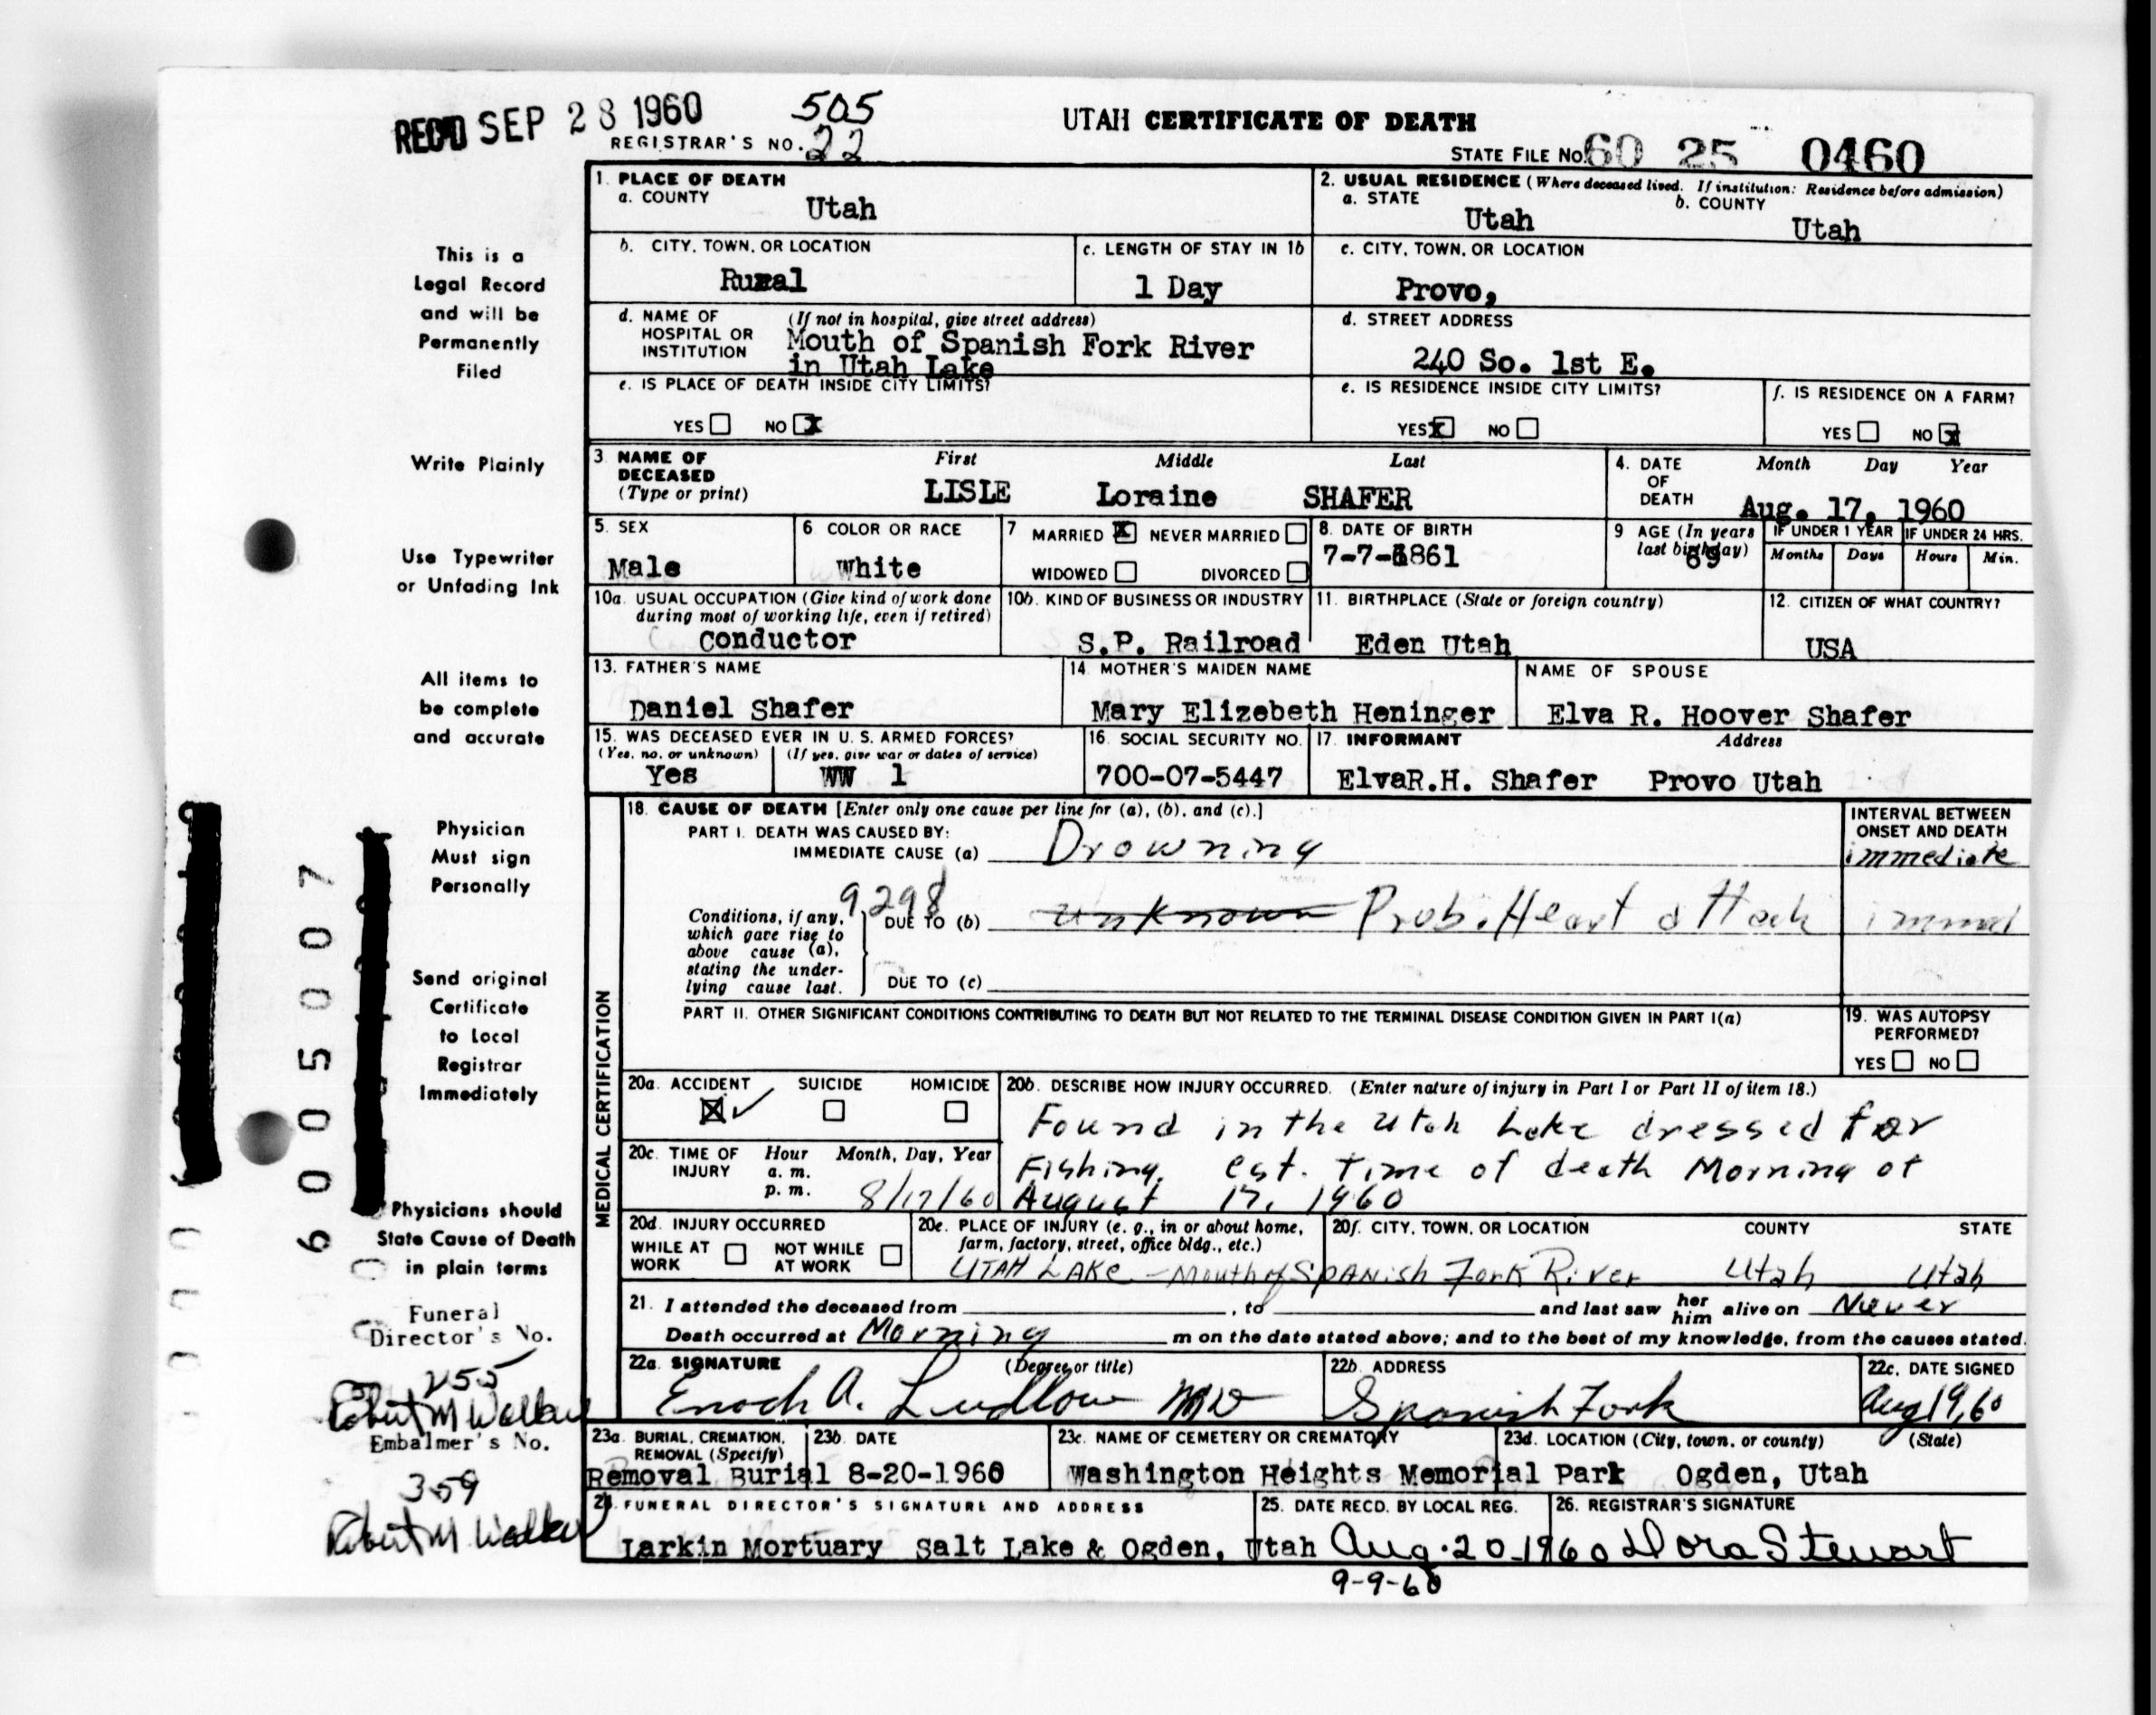 REC'D SEP 28 1960
505
REGISTRAR'S NO. 22
UTAH CERTIFICATE OF DEATH
STATE FILE NO. 60 25 0460
This is a
Legal Record
and will be
Permanently
Filed
Write Plainly
Use Typewriter
or Unfading Ink
All items to
be complete
and accurate
Physician
Must sign
Personally
Send original
Certificate
to Local
Registrar
Immediately
Physicians should
State Cause of Death
in plain terms
Funeral
Director's No.
255
Robert M Walker
Embalmer's No.
359
Robert M Walker
6005007
1. PLACE OF DEATH
a. COUNTY
Utah
2. USUAL RESIDENCE (Where deceased lived. If institution: Residence before admission)
a. STATE
Utah
b. COUNTY
Utah
b. CITY, TOWN, OR LOCATION
Rural
c. LENGTH OF STAY IN 1b
1 Day
c. CITY, TOWN, OR LOCATION
Provo,
d. NAME OF HOSPITAL OR INSTITUTION
(If not in hospital, give street address)
Mouth of Spanish Fork River
in Utah Lake
d. STREET ADDRESS
240 So. 1st E.
e. IS PLACE OF DEATH INSIDE CITY LIMITS?
YES NO X
e. IS RESIDENCE INSIDE CITY LIMITS?
YES X NO
f. IS RESIDENCE ON A FARM?
YES NO X
3 NAME OF DECEASED
(Type or print)
First Middle Last
LISLE Loraine SHAFER
4. DATE OF DEATH
Month Day Year
Aug. 17, 1960
5. SEX
Male
6 COLOR OR RACE
White
7 MARRIED X NEVER MARRIED
WIDOWED DIVORCED
8. DATE OF BIRTH
7-7-1861
9 AGE (In years last birthday)
69
IF UNDER 1 YEAR
Months Days
IF UNDER 24 HRS.
Hours Min.
10a. USUAL OCCUPATION (Give kind of work done during most of working life, even if retired)
Conductor
10b. KIND OF BUSINESS OR INDUSTRY
S.P. Railroad
11. BIRTHPLACE (State or foreign country)
Eden Utah
12. CITIZEN OF WHAT COUNTRY?
USA
13. FATHER'S NAME
Daniel Shafer
14 MOTHER'S MAIDEN NAME
Mary Elizebeth Heninger
NAME OF SPOUSE
Elva R. Hoover Shafer
15. WAS DECEASED EVER IN U. S. ARMED FORCES?
(Yes, no, or unknown) (If yes, give war or dates of service)
Yes WW 1
16. SOCIAL SECURITY NO.
700-07-5447
17. INFORMANT Address
ElvaR.H. Shafer Provo Utah
MEDICAL CERTIFICATION
18. CAUSE OF DEATH [Enter only one cause per line for (a), (b), and (c).]
PART I. DEATH WAS CAUSED BY:
IMMEDIATE CAUSE (a) Drowning
INTERVAL BETWEEN ONSET AND DEATH
immediate
9298
Conditions, if any, which gave rise to above cause (a), stating the underlying cause last.
DUE TO (b) unknown Prob. Heart attack immed
DUE TO (c)
PART II. OTHER SIGNIFICANT CONDITIONS CONTRIBUTING TO DEATH BUT NOT RELATED TO THE TERMINAL DISEASE CONDITION GIVEN IN PART I(a)
19. WAS AUTOPSY PERFORMED?
YES NO
20a. ACCIDENT SUICIDE HOMICIDE
X ✓
20b. DESCRIBE HOW INJURY OCCURRED. (Enter nature of injury in Part I or Part II of item 18.)
Found in the Utah Lake dressed for
Fishing. est. time of death Morning of
August 17, 1960
20c. TIME OF INJURY
Hour Month, Day, Year
a. m.
p. m.
8/17/60
20d. INJURY OCCURRED
WHILE AT WORK NOT WHILE AT WORK
20e. PLACE OF INJURY (e. g., in or about home, farm, factory, street, office bldg., etc.)
20f. CITY, TOWN, OR LOCATION COUNTY STATE
UTAH LAKE - Mouth of SPANish Fork River Utah Utah
21. I attended the deceased from , to and last saw her him alive on Never
Death occurred at Morning m on the date stated above; and to the best of my knowledge, from the causes stated.
22a. SIGNATURE (Degree or title)
Enoch A. Ludlow MD
22b. ADDRESS
Spanish Fork
22c. DATE SIGNED
Aug 19, 60
23a. BURIAL, CREMATION, REMOVAL (Specify)
Removal Burial
23b. DATE
8-20-1960
23c. NAME OF CEMETERY OR CREMATORY
Washington Heights Memorial Park
23d. LOCATION (City, town, or county) (State)
Ogden, Utah
24. FUNERAL DIRECTOR'S SIGNATURE AND ADDRESS
Larkin Mortuary Salt Lake & Ogden, Utah
25. DATE RECD. BY LOCAL REG.
Aug. 20-1960
26. REGISTRAR'S SIGNATURE
Dora Stewart
9-9-60